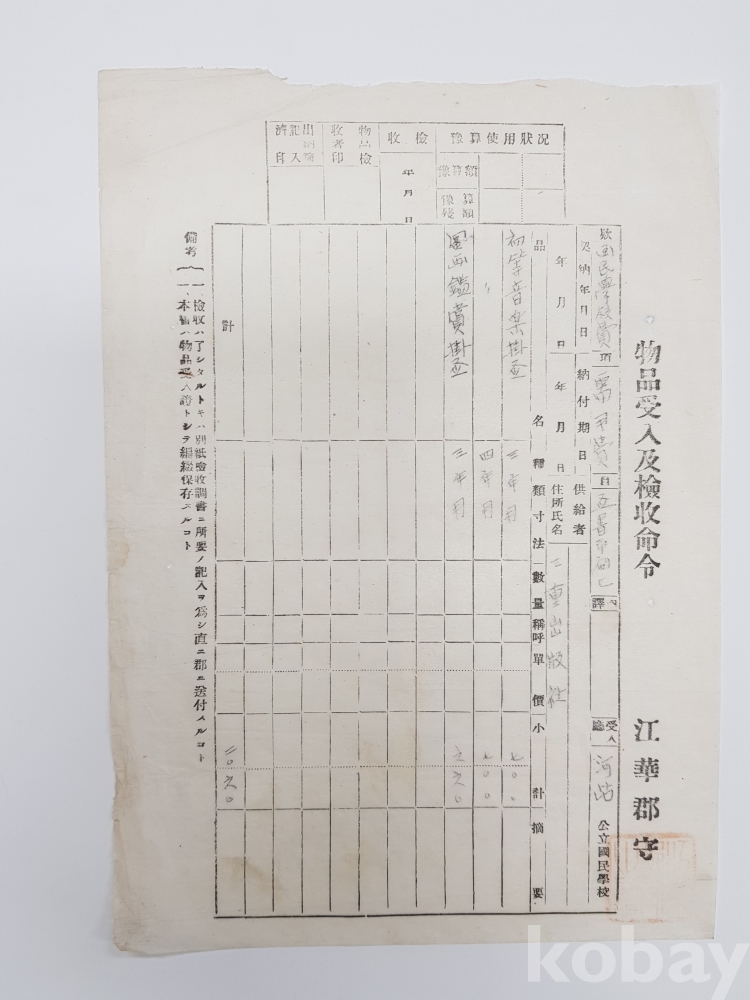 物品受入及檢收命令
江華郡守
款 國民學校費
項 需用費
目
內譯
受入廳 河岾 公立國民學校
受納年月日
年 月 日
納付期日
年 月 日
供給者住所氏名
三重出版社
品名
種類寸法
數量
稱呼
單價
小計
摘要
初等音楽掛図 三年用 七〇〇
〃 四年用 七〇〇
図画鑑賞掛図 三年用 六六〇
計 二〇六〇
豫算使用狀况
豫算額
豫算殘額
檢收
年 月 日
物品檢收者印
出納簿記入濟印
備考
一、檢收ハ了シタルトキハ別紙檢收調書ニ所要ノ記入ヲ爲シ直ニ郡ニ送付スルコト
一、本書ハ物品受入證トシテ編綴保存スルコト
kobay